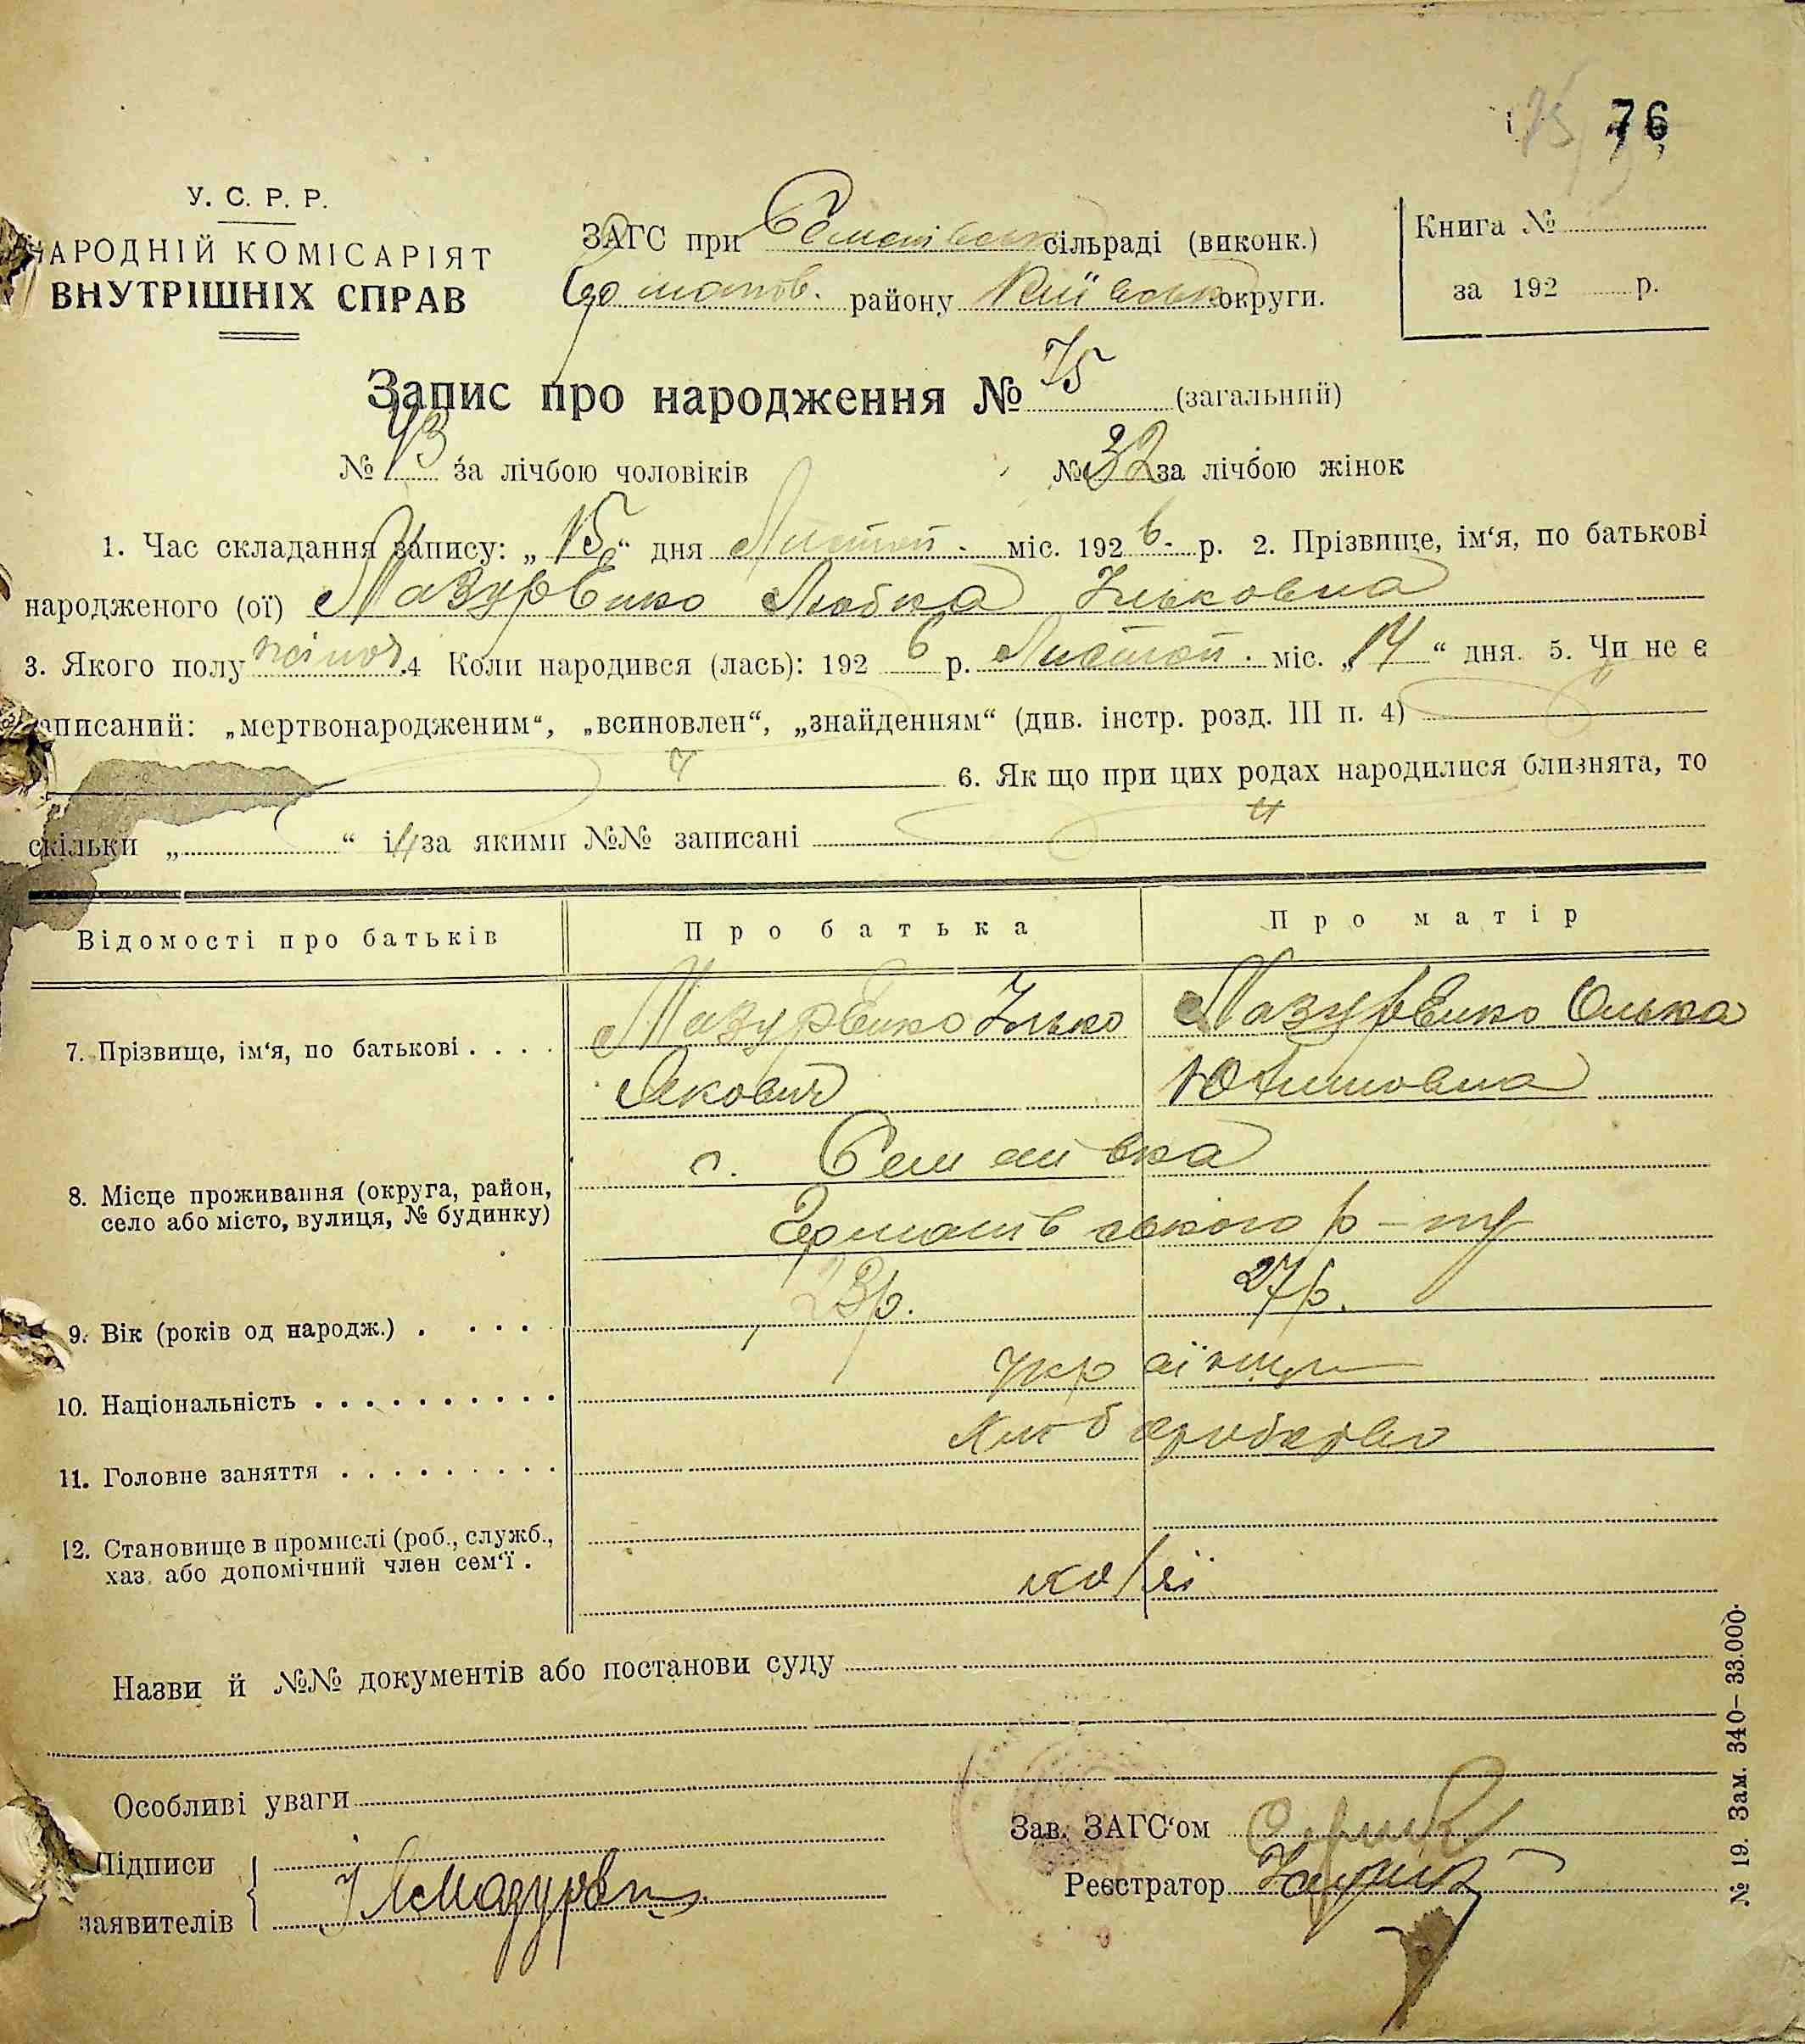 76
75
У. С. Р. Р.
НАРОДНІЙ КОМІСАРІЯТ
ВНУТРІШНІХ СПРАВ
ЗАГС при Семенівськ сільраді (виконк.)
району Київськ округи.
Книга №
за 192 р.
Запис про народження № 75 (загальний)
№ 43 за лічбою чоловіків № 32 за лічбою жінок
1. Час складання запису: „15“ дня Листоп. міс. 1926. р. 2. Прізвище, ім‘я, по батькові
народженого (ої) Мазуренко Любка Ільковна
3. Якого полу жіноч. 4 Коли народився (лась): 1926 р. Листоп. міс. „14“ дня. 5. Чи не є
записаний: „мертвонародженим“, „всиновлен“, „знайденням“ (див. інстр. розд. III п. 4)
6. Як що при цих родах народилися близнята, то
скільки „ “ і за якими №№ записані
Відомості про батьків Про батька Про матір
7. Прізвище, ім‘я, по батькові . . . . Мазуренко Ілько Мазуренко Олька
Якович Юхимовна
8. Місце проживання (округа, район,
село або місто, вулиця, № будинку)
с. Семенівка
р-ну
9. Вік (років од народж.) . . . . 23р. 27р.
10. Національність . . . . . . . . . . українці
11. Головне заняття . . . . . . . . . хліборобство
12. Становище в промислі (роб., служб.,
хаз. або допомічний член сем‘ї .
Назви й №№ документів або постанови суду
Особливі уваги
Підписи
заявителів
Зав. ЗАГС‘ом
Реєстратор
№ 19. Зам. 340— 33.000.